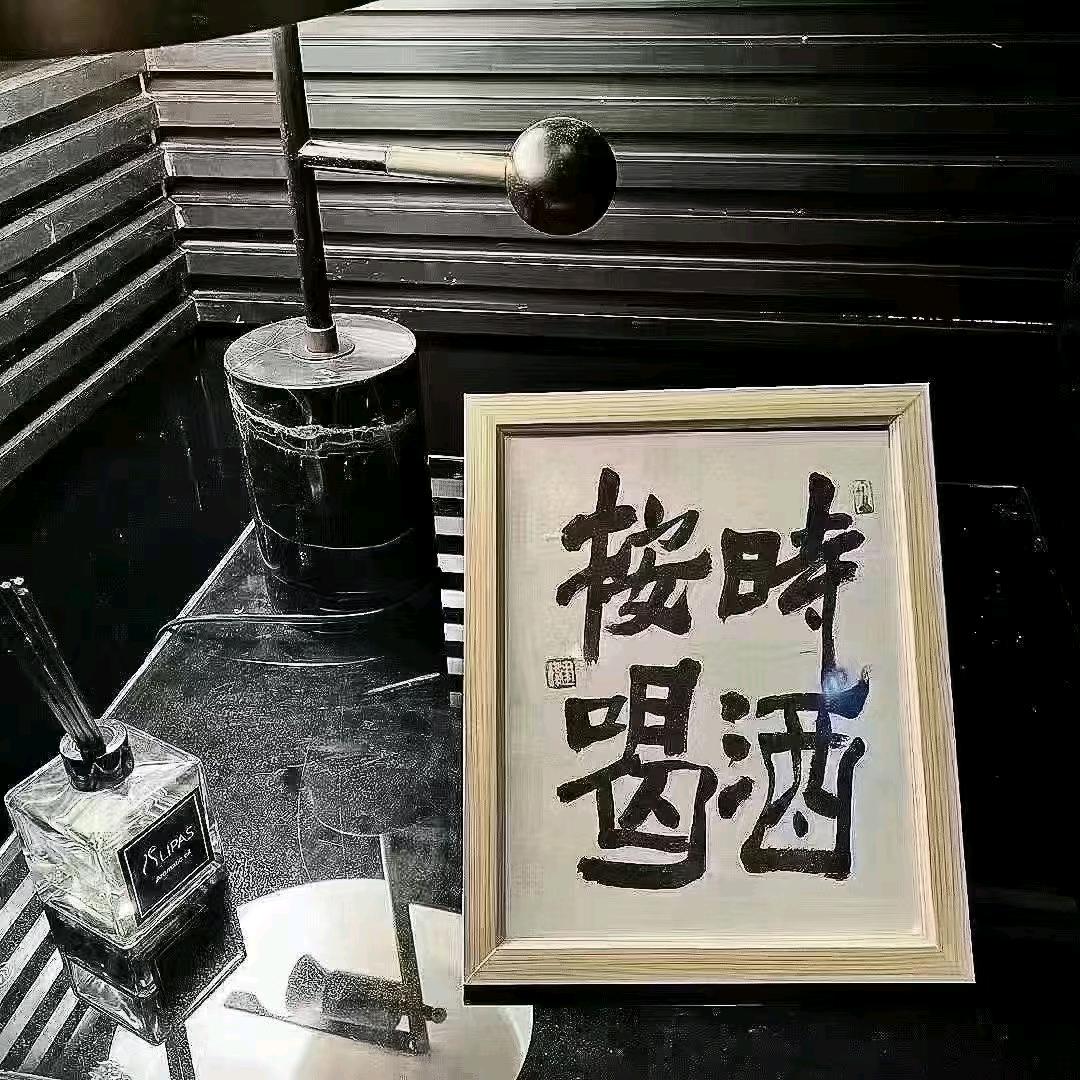 按時
喝酒
LIPAS